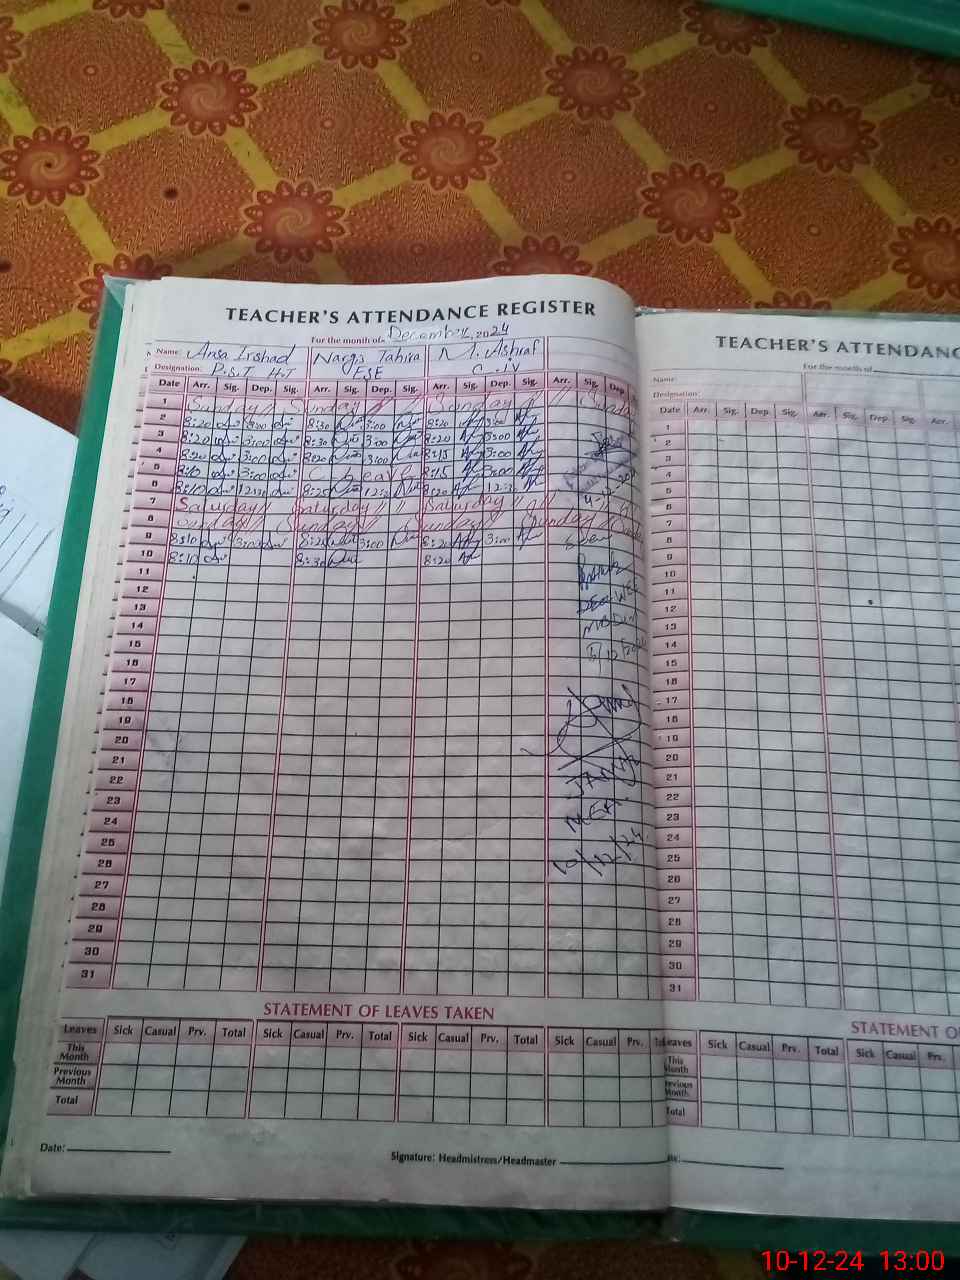 TEACHER'S ATTENDANCE REGISTER
For the month of December, 2024
Name: Ansa Irshad Nargis Tahira M. Ashraf
Designation: P.S.T H.T ESE C-IV
Date Arr. Sig. Dep. Sig. Arr. Sig. Dep. Sig. Arr. Sig. Dep. Sig. Arr. Sig. Dep.
1 Sunday // Sunday // Sunday // Sunday
2 8:20 3:00 8:30 3:00 8:20 3:00
3 8:20 3:00 8:30 3:00 8:20 3:00
4 8:20 3:00 8:20 3:00 8:15 3:00
5 8:10 3:00 C leave 8:15 3:00
6 8:10 12:30 8:25 12:30 8:20 12:30
4-12-2024
7 Saturday // Saturday // // Saturday // //
8 Sunday // Sunday // Sunday // Sunday
9 8:10 3:00 8:20 3:00 8:20 3:00
10 8:10 8:30 8:20
11
12
DEO-WEE
13
MBDIN
14
5/12/2024
15
16
17
18
19
20
21
22
23
MEA
24
25
10/12/24
26
27
28
29
30
31
STATEMENT OF LEAVES TAKEN
Leaves Sick Casual Prv. Total Sick Casual Prv. Total Sick Casual Prv. Total Sick Casual Prv.
This Month
Previous Month
Total
Date:
Signature: Headmistress/Headmaster
TEACHER'S ATTENDANC
For the month of
Name:
Designation:
Date Arr. Sig. Dep. Sig. Arr. Sig. Dep. Sig. Arr.
1
2
3
4
5
6
7
8
9
10
11
12
13
14
15
16
17
18
19
20
21
22
23
24
25
26
27
28
29
30
31
STATEMENT O
Leaves Sick Casual Prv. Total Sick Casual Prv.
This Month
Previous Month
Total
10-12-24 13:00